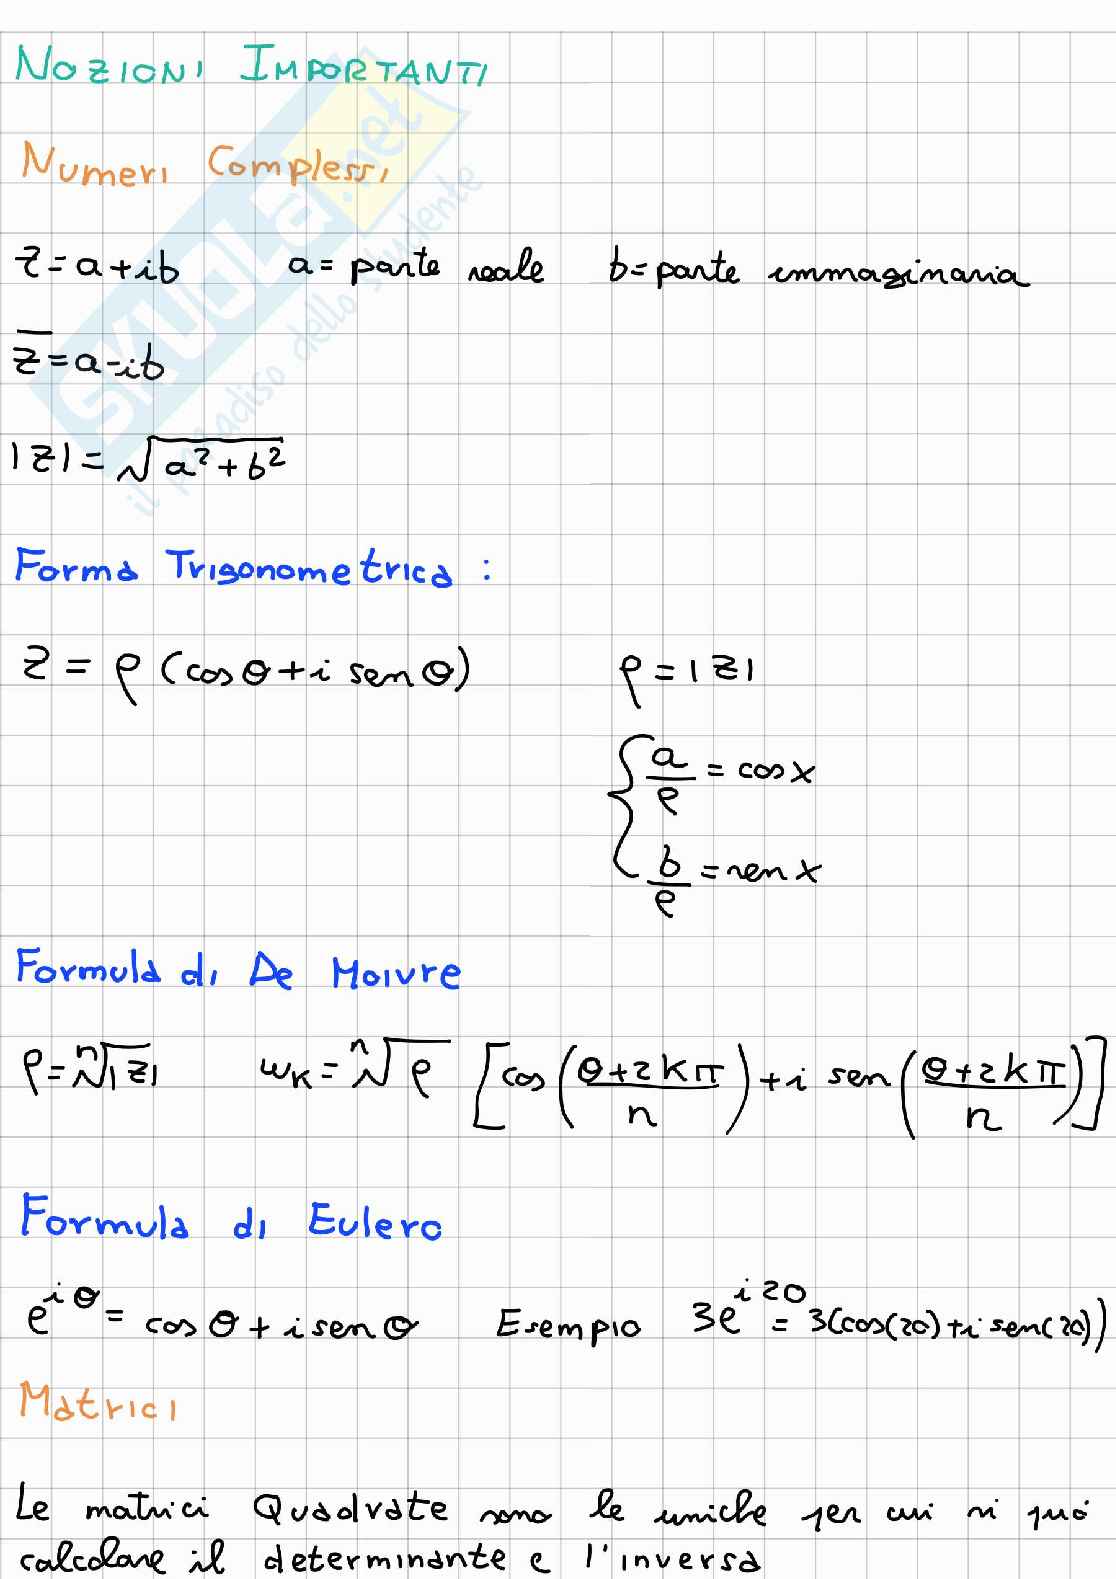 NOZIONI IMPORTANTI
Numeri Complessi
z = a+ib a = parte reale b = parte immaginaria
z̅ = a-ib
|z| = √(a²+b²)
Forma Trigonometrica :
z = ρ (cos θ + i sen θ) ρ = |z|
{ a/ρ = cos x
b/ρ = sen x
Formula di De Moivre
ρ = ⁿ√|z| wₖ = ⁿ√ρ [cos((θ+2kπ)/n) + i sen((θ+2kπ)/n)]
Formula di Eulero
e^{iθ} = cos θ + i sen θ Esempio 3e^{i20} = 3(cos(20)+i sen(20))
Matrici
Le matrici Quadrate sono le uniche per cui si può
calcolare il determinante e l'inversa
SKUOLA.net
il paradiso dello studente